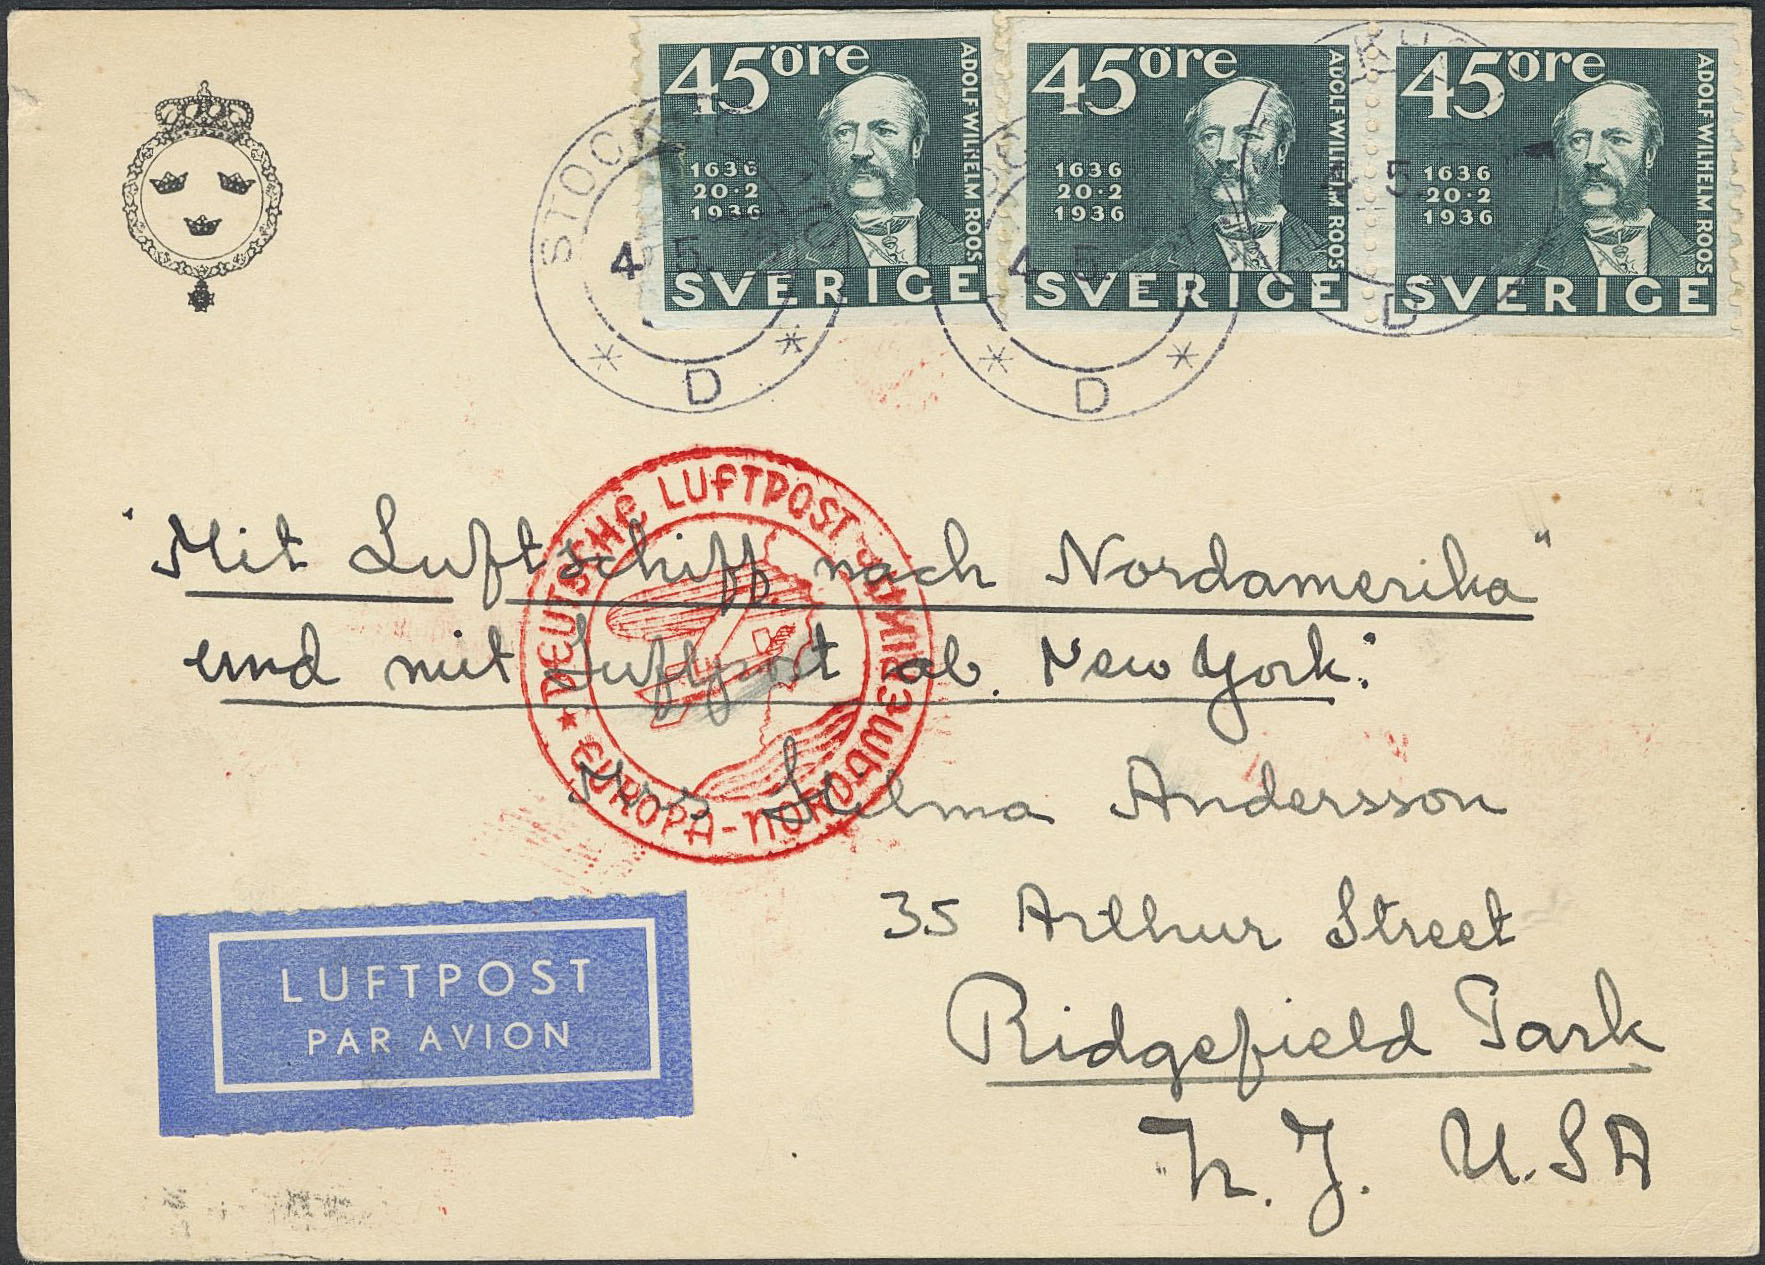 45 öre
ADOLF WILHELM ROOS
1636
20·2
1936
SVERIGE
45 öre
ADOLF WILHELM ROOS
1636
20·2
1936
SVERIGE
45 öre
ADOLF WILHELM ROOS
1636
20·2
1936
SVERIGE
STOCKHOLM
4 5
D
4 5
D
5
D
DEUTSCHE LUFTPOST
EUROPA-NORDAMERIKA
"Mit Luftschiff nach Nordamerika"
und mit Luftpost ab. New York.
Selma Andersson
35 Arthur Street
Ridgefield Park
N. J. U.S A
LUFTPOST
PAR AVION